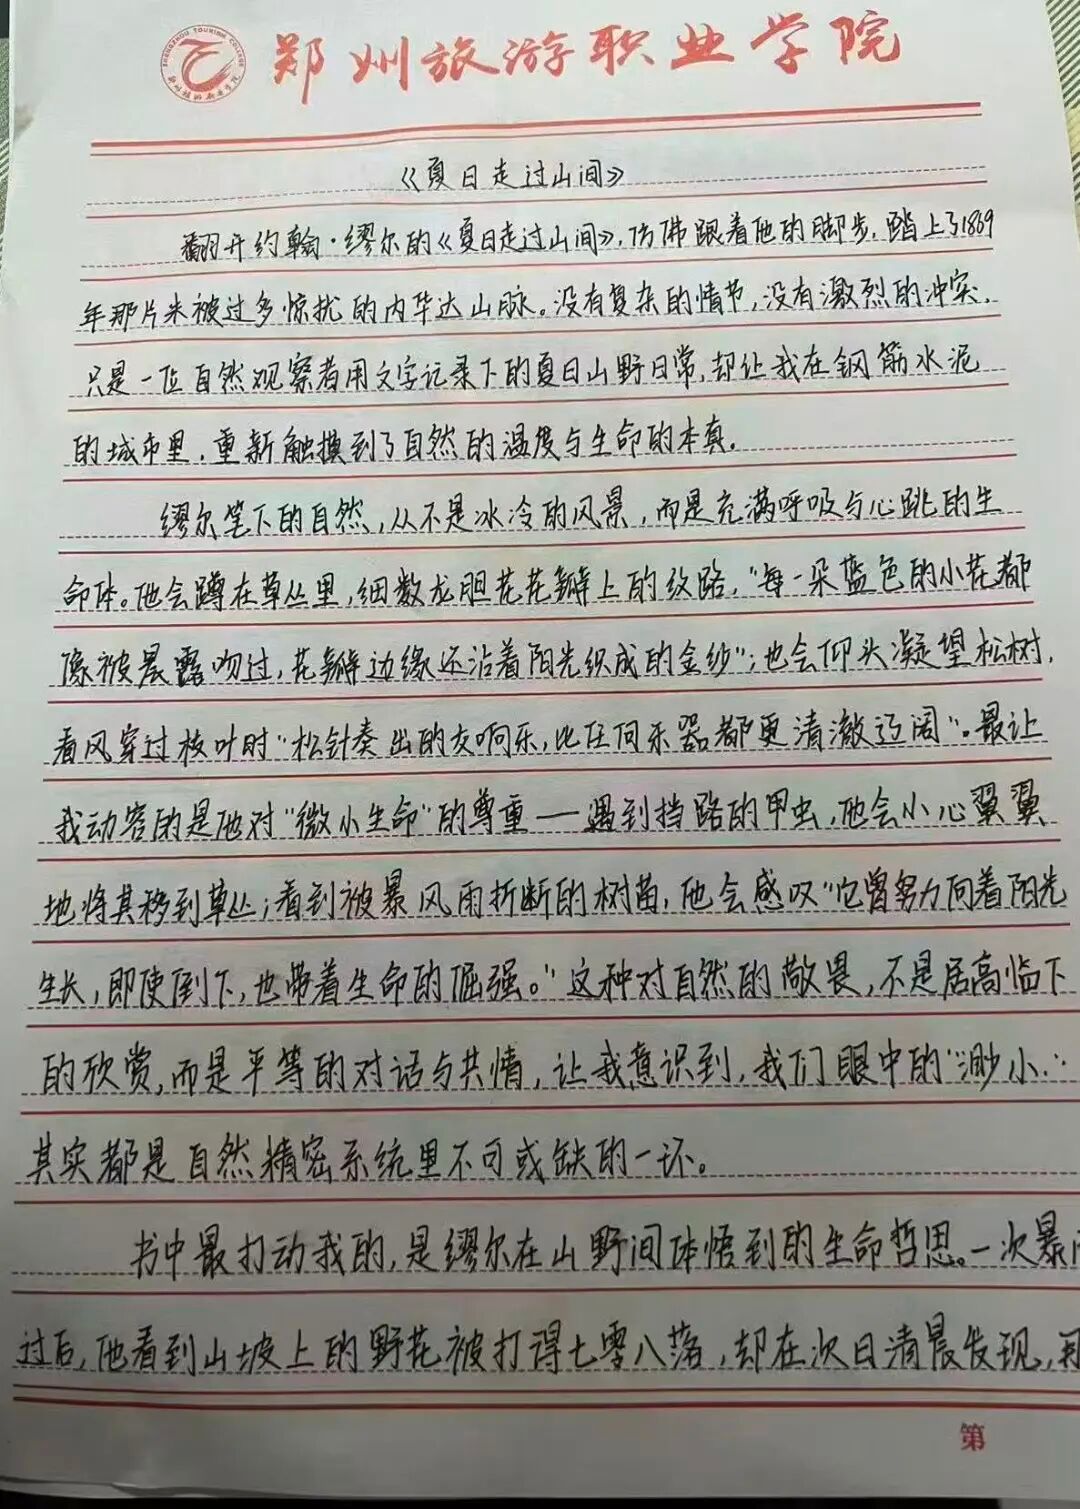 郑州旅游职业学院
《夏日走过山间》
翻开约翰·缪尔的《夏日走过山间》,仿佛跟着他的脚步,踏上了1869
年那片未被过多惊扰的内华达山脉。没有复杂的情节,没有激烈的冲突,
只是一位自然观察者用文字记录下的夏日山野日常,却让我在钢筋水泥
的城市里,重新触摸到了自然的温度与生命的本真。
缪尔笔下的自然,从不是冰冷的风景,而是充满呼吸与心跳的生
命体。他会蹲在草丛里,细数龙胆花花瓣上的纹路,“每一朵蓝色的小花都
像被晨露吻过,花瓣边缘还沿着阳光织成的金纱”;也会仰头凝望松树,
看风穿过枝叶时“松针奏出的交响乐,比任何乐器都更清澈辽阔”。最让
我动容的是他对“微小生命”的尊重——遇到挡路的甲虫,他会小心翼翼
地将其移到草丛;看到被暴风雨折断的树苗,他会感叹“它曾努力向着阳光
生长,即使倒下,也带着生命的倔强。”这种对自然的敬畏,不是居高临下
的欣赏,而是平等的对话与共情,让我意识到,我们眼中的“渺小”
其实都是自然精密系统里不可或缺的一环。
书中最打动我的,是缪尔在山野间体悟到的生命哲思。一次暴
过后,他看到山坡上的野花被打得七零八落,却在次日清晨发现,
第